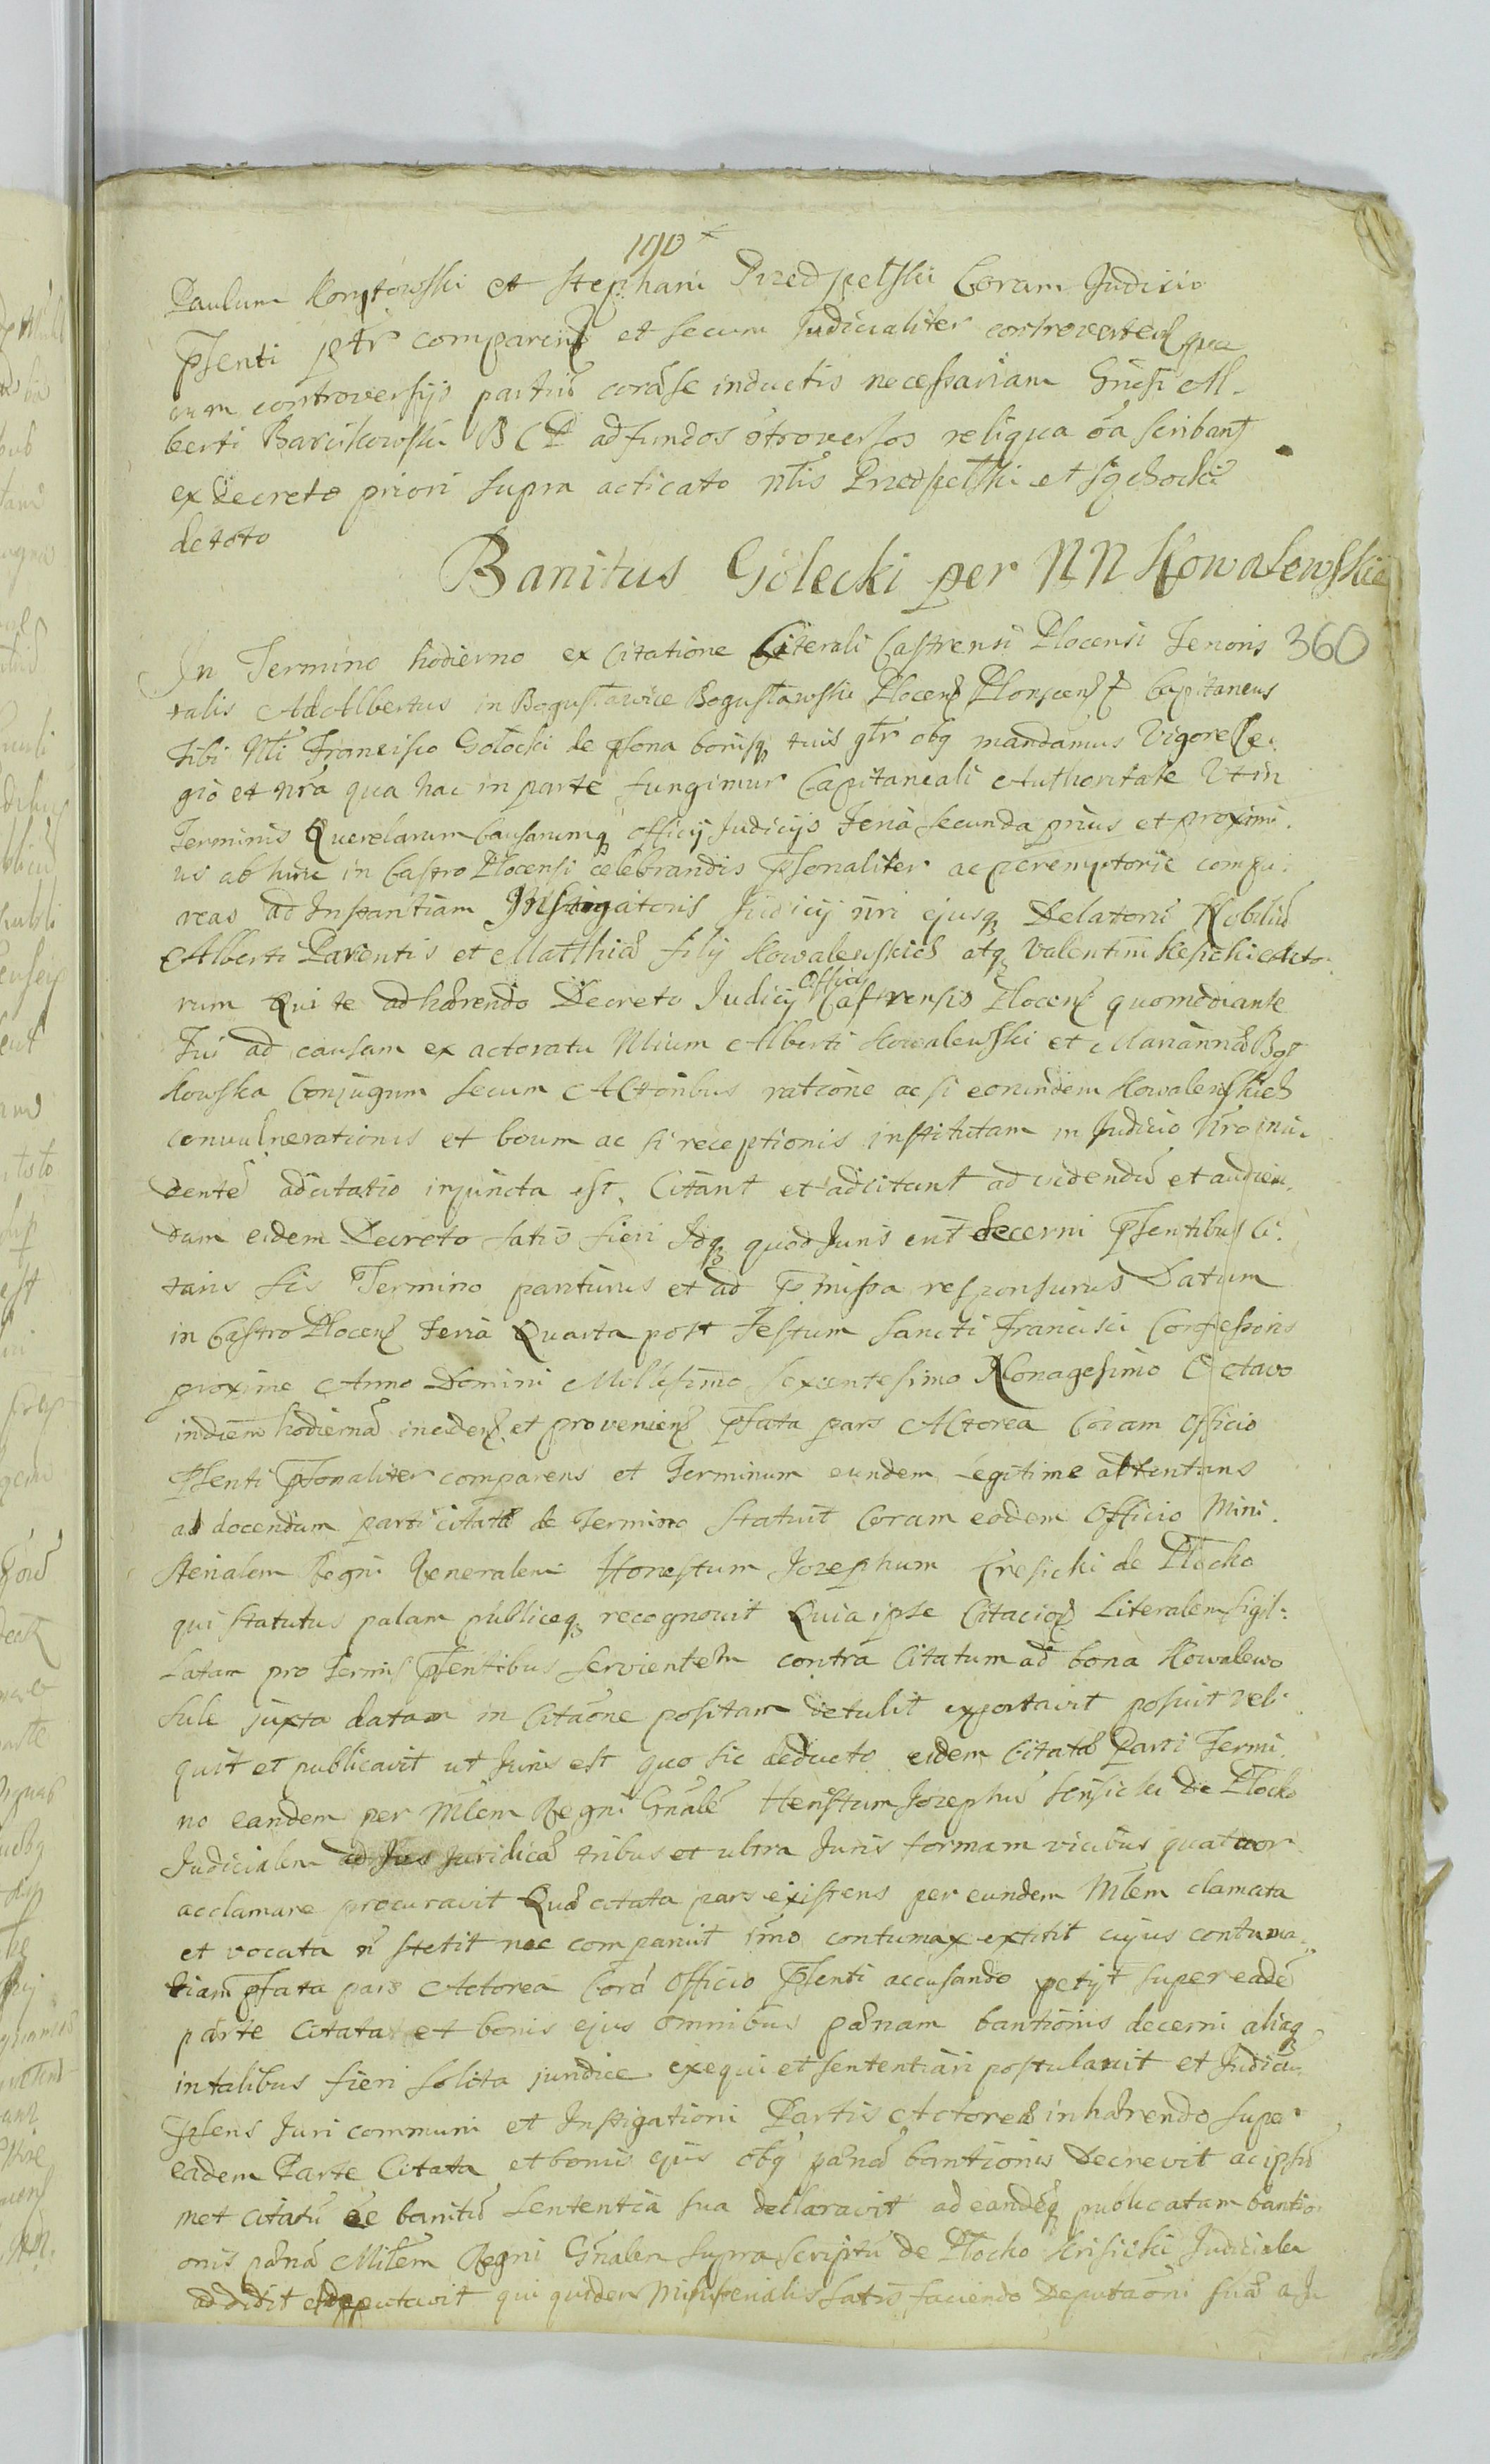 190
Paulum Komptowski et Stephani Przedpełski Coram Judicio
Psenti ptr comparen et secum Judicialiter controverten qua
rum controversijs partiu cora se inductis necessariam Gnosi Al-
berti Barcikowski B C P ad fundos otroversos reliqua oa scribant
ex Decreto priori supra acticato Nlis Przedpełski et
de toto
Banitus Gołecki per NN Kowalewskie
360
In Termino hodierno ex Citatione Literali Castrensi Plocensi Tenoris
talis Adalbertus in Bogusławice Bogusławski Plocen Plonscen Capitaneus
Tibi Nli Francisco Gołocki de psona bonisq tuis gtr obq mandamus Vigore Re-
gio et nra qua hac in parte fungimur Capitaneali Authoritate Ut in
Terminis Querelarum Causarumq officij Judicijs Feria secunda prius et proximi-
us ab hinc in Castro Plocensi celebrandis Psonaliter ac peremptorie compa-
reas ad Instantiam Instigatoris Judicij nri ejusq Delatoru Nobiliu
Alberti Parentis et Matthiae filij Kowalewskich atq Valentini Kesicki Acto-
rum Qui te adhaerendo Decreto Judicij Officij Castrensis Plocen quo mediante
Tui ad causam ex actoratu Nlium Alberti Kowalewski et Marianna
kowska Conjugum secum Actoribus ratione ac si eorundem Kowalewskich
convulnerationis et boum ac si receptionis institutam in Judicio Nro inci-
dente adcitatio injuncta est. Citant et adcitant ad videndu et audien-
dum eidem Decreto satis fieri Idq quod Juris erit decerni Psentibus Ci-
tatus sis Termino pariturus et ad Pmissa responsurus Datum
in Castro Plocen Feria Quarta post Festum Sancti Francisci Confessoris
proxime Anno Domini Millesimo Sexcentesimo Nonagesimo Octavo
in diem hodierna inciden et provenien Pfata pars Actorea Coram Officio
Psenti Psonaliter comparens et Terminum eundem Legitime attentans
ad docendum parti citatae de Termino statuit Coram eodem Officio Mini-
sterialem Regni Generalem Honestum Josephum Kresicki de Płocko
qui statutus palam publiceq recognovit Quia ipse Citacio Literalem sigil-
latam pro Termis Psentibus servientem contra Citatum ad bona Kowalewo
Sule juxta datam in Citaone positam detulit exportavit posuit reli-
quit et publicavit ut Juris est quo sic deducto eidem Citatae Parti Termi-
no eandem per Mlem Regni Gnale Honestum Josephu Krisicki de Płocko
Judicialem ad Jus Juridica tribus et ultra Juris formam vicibus quatuor
acclamare procuravit Quae citata pars existens per eundem Mlem clamata
et vocata n stetit nec comparuit imo contumax extitit cujus contuma-
tiam pfata pars Actorea Cora Officio Psenti accusando petijt super eade
parte Citata et bonis ejus omnibus paenam banitionis decerni aliaq
in talibus fieri solita juridice exequi et sententiari postulavit et Judiciu
Psens Juri communi et Instigationi Partis Actoreae inhaerendo super
eadem Parte Citata et bonis ejus obq paena banitionis Decrevit ac ipsu
met citatu ee banitu Sententia sua declaravit ad eandeq publicatam banitio-
onis paena Milem Regni Gnalem supra scriptu de Płocko Krisicki Judicialem
addidit et deputavit qui quidem Ministerialis satis faciendo Deputaoni suae